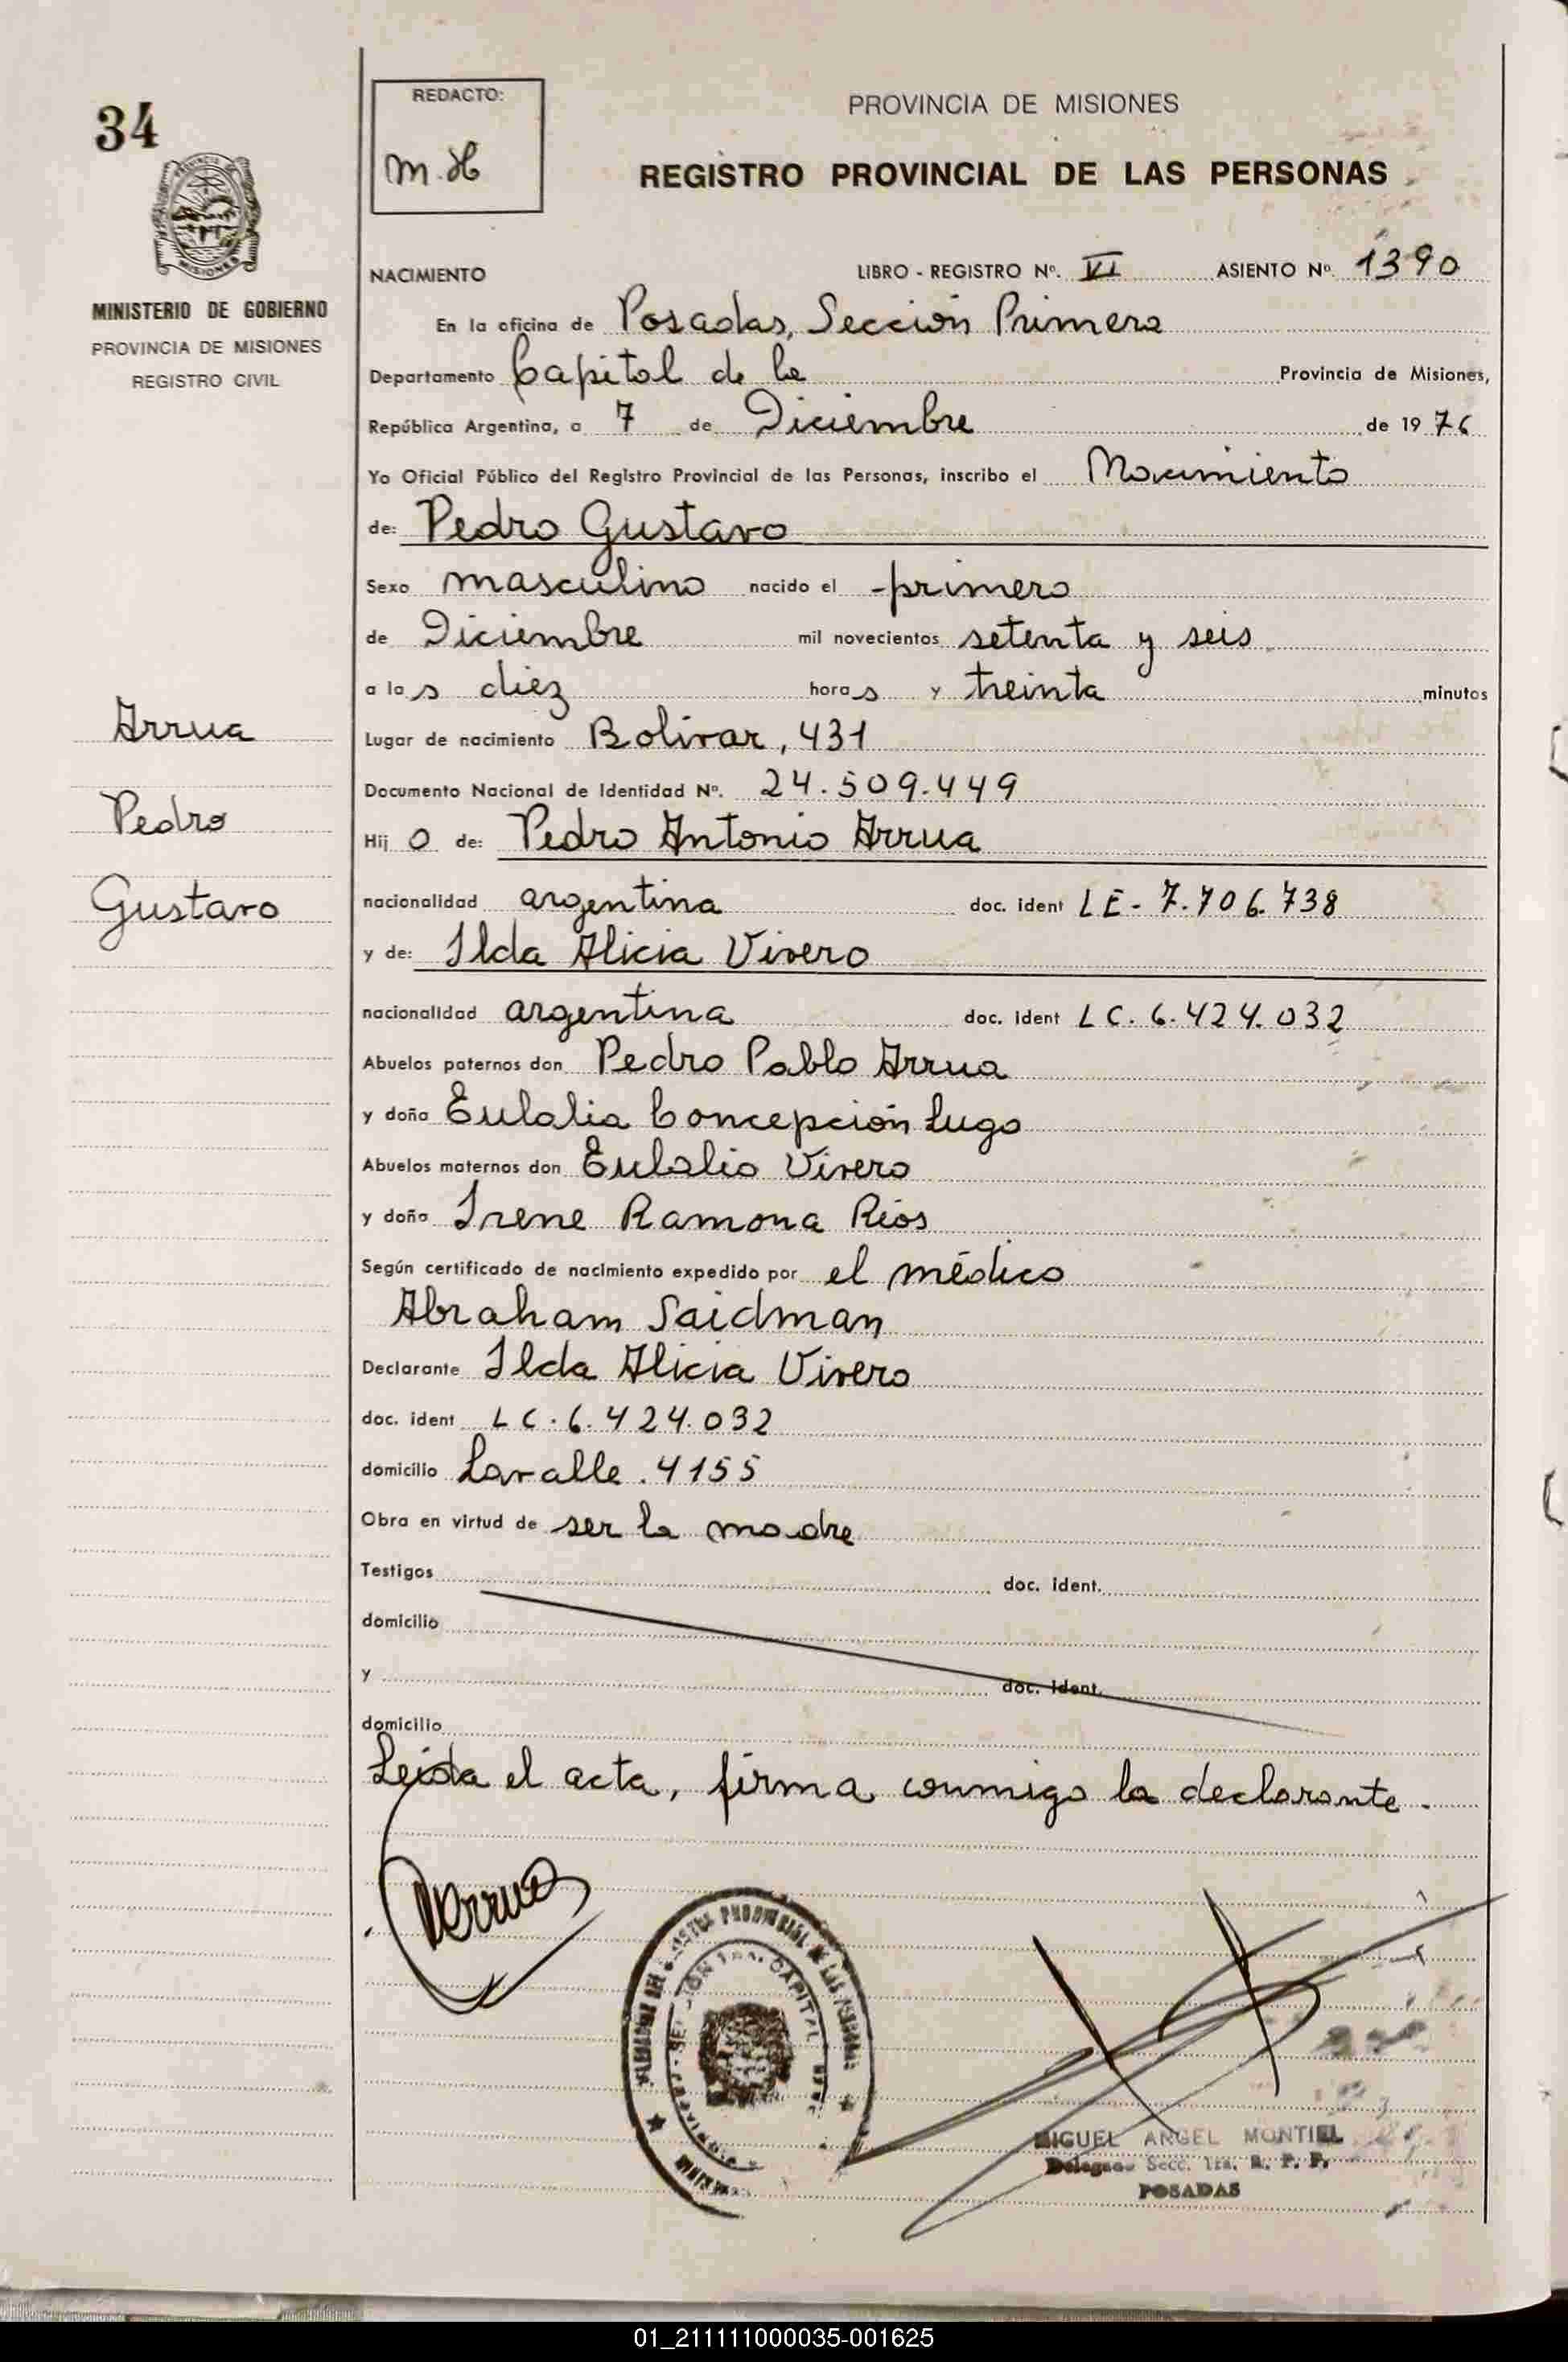 34
REDACTO:
m.H
PROVINCIA DE MISIONES
REGISTRO PROVINCIAL DE LAS PERSONAS
MISIONES
MINISTERIO DE GOBIERNO
PROVINCIA DE MISIONES
REGISTRO CIVIL
NACIMIENTO LIBRO - REGISTRO Nº. VI ASIENTO Nº. 1390
En la oficina de Posadas, Sección Primera
Departamento Capital de la Provincia de Misiones,
República Argentina, a 7 de Diciembre de 1976
Yo Oficial Público del Registro Provincial de las Personas, inscribo el Nacimiento
de: Pedro Gustavo
Sexo masculino nacido el -primero
de Diciembre mil novecientos setenta y seis
a las diez horas y treinta minutos
Lugar de nacimiento Bolivar, 431
Documento Nacional de Identidad Nº. 24.509.449
Hijo de: Pedro Antonio Arrua
nacionalidad argentina doc. ident LE- 7.706.738
y de: Ilda Alicia Vivero
nacionalidad argentina doc. ident LC. 6.424.032
Abuelos paternos don Pedro Pablo Arrua
y doña Eulalia Concepción Lugo
Abuelos maternos don Eulalio Vivero
y doña Irene Ramona Rios
Según certificado de nacimiento expedido por el médico
Abraham Saidman
Declarante Ilda Alicia Vivero
doc. ident LC.6.424.032
domicilio Lavalle.4155
Obra en virtud de ser la madre
Testigos doc. ident.
domicilio
y doc. ident.
domicilio
Leída el acta, firma conmigo la declarante.
Arrua
Pedro
Gustavo
MIGUEL ANGEL MONTIEL
Delegado Secc. 1ra. R. P. P.
POSADAS
01_211111000035-001625